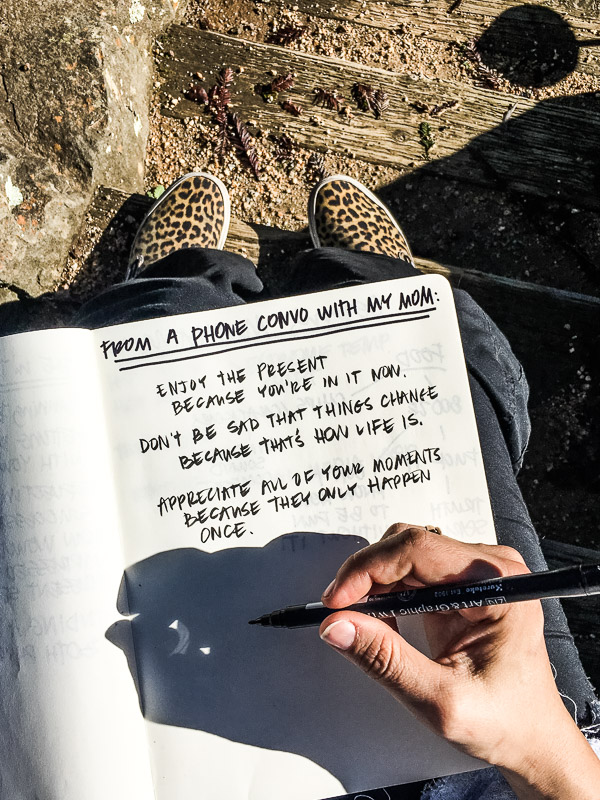 FROM A PHONE CONVO WITH MY MOM:
ENJOY THE PRESENT
BECAUSE YOU'RE IN IT NOW.
DON'T BE SAD THAT THINGS CHANGE
BECAUSE THAT'S HOW LIFE IS.
APPRECIATE ALL OF YOUR MOMENTS
BECAUSE THEY ONLY HAPPEN
ONCE.
Kuretake Est.1902
Art & Graphic TWIN